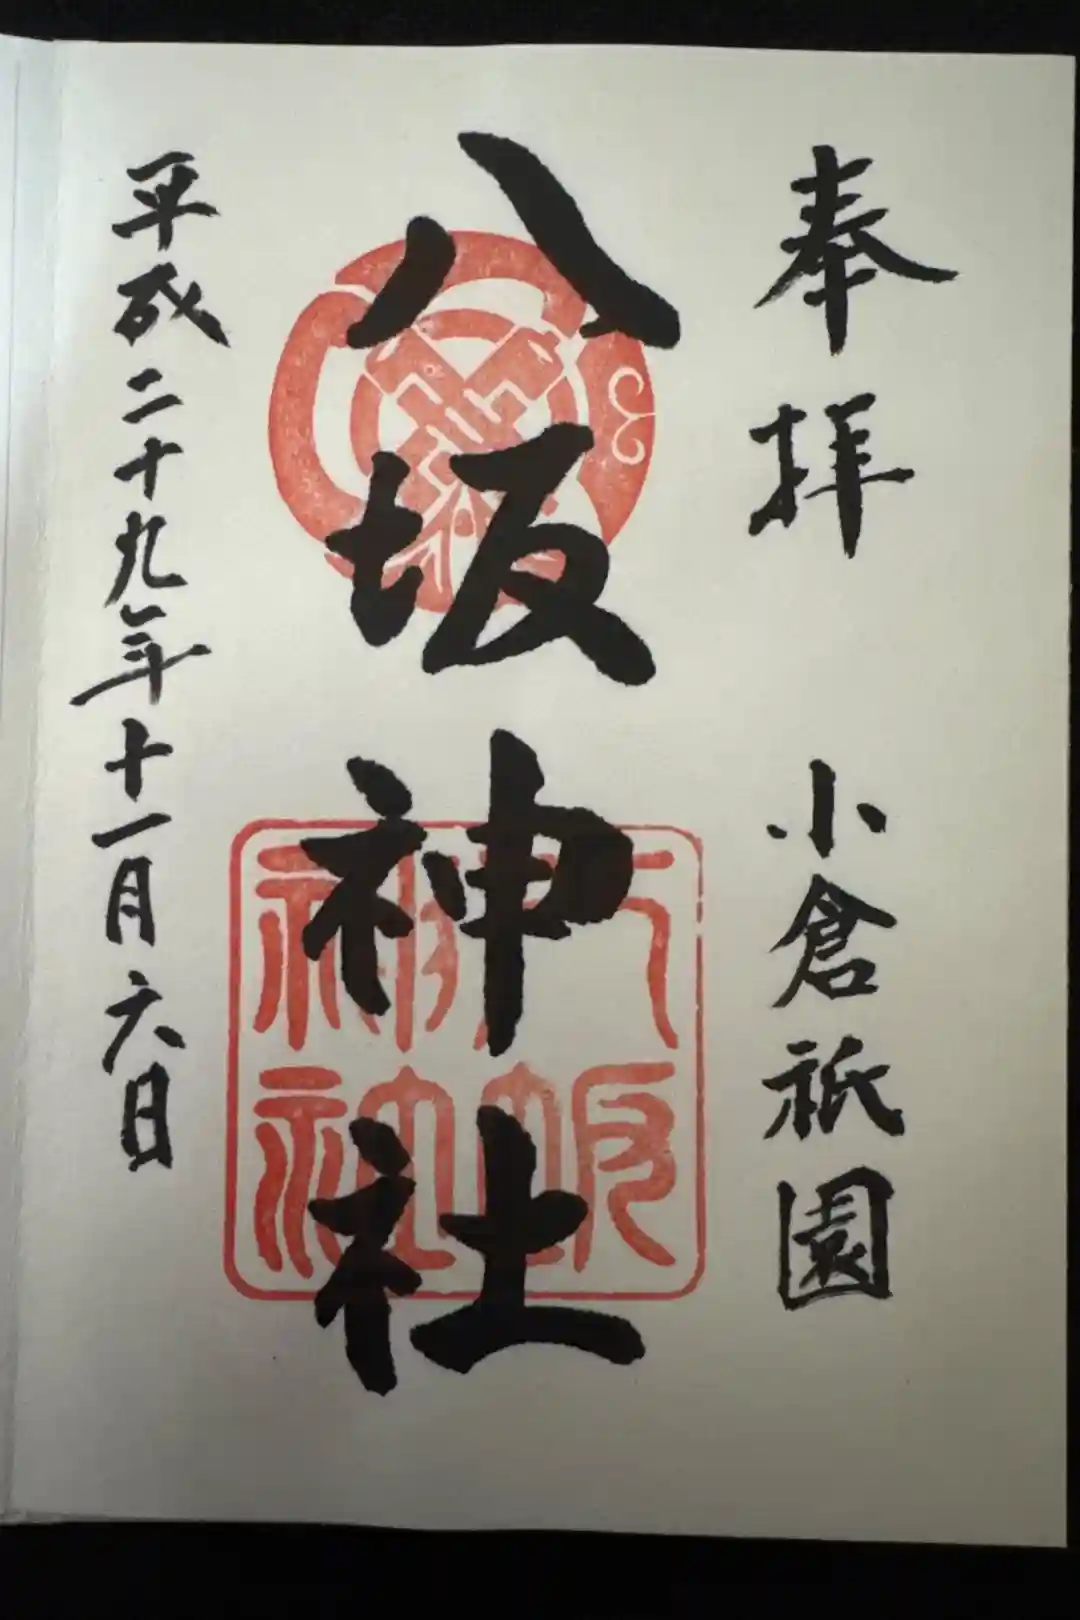 奉拝 小倉祇園
八坂神社
八坂神社
平成二十九年十一月六日